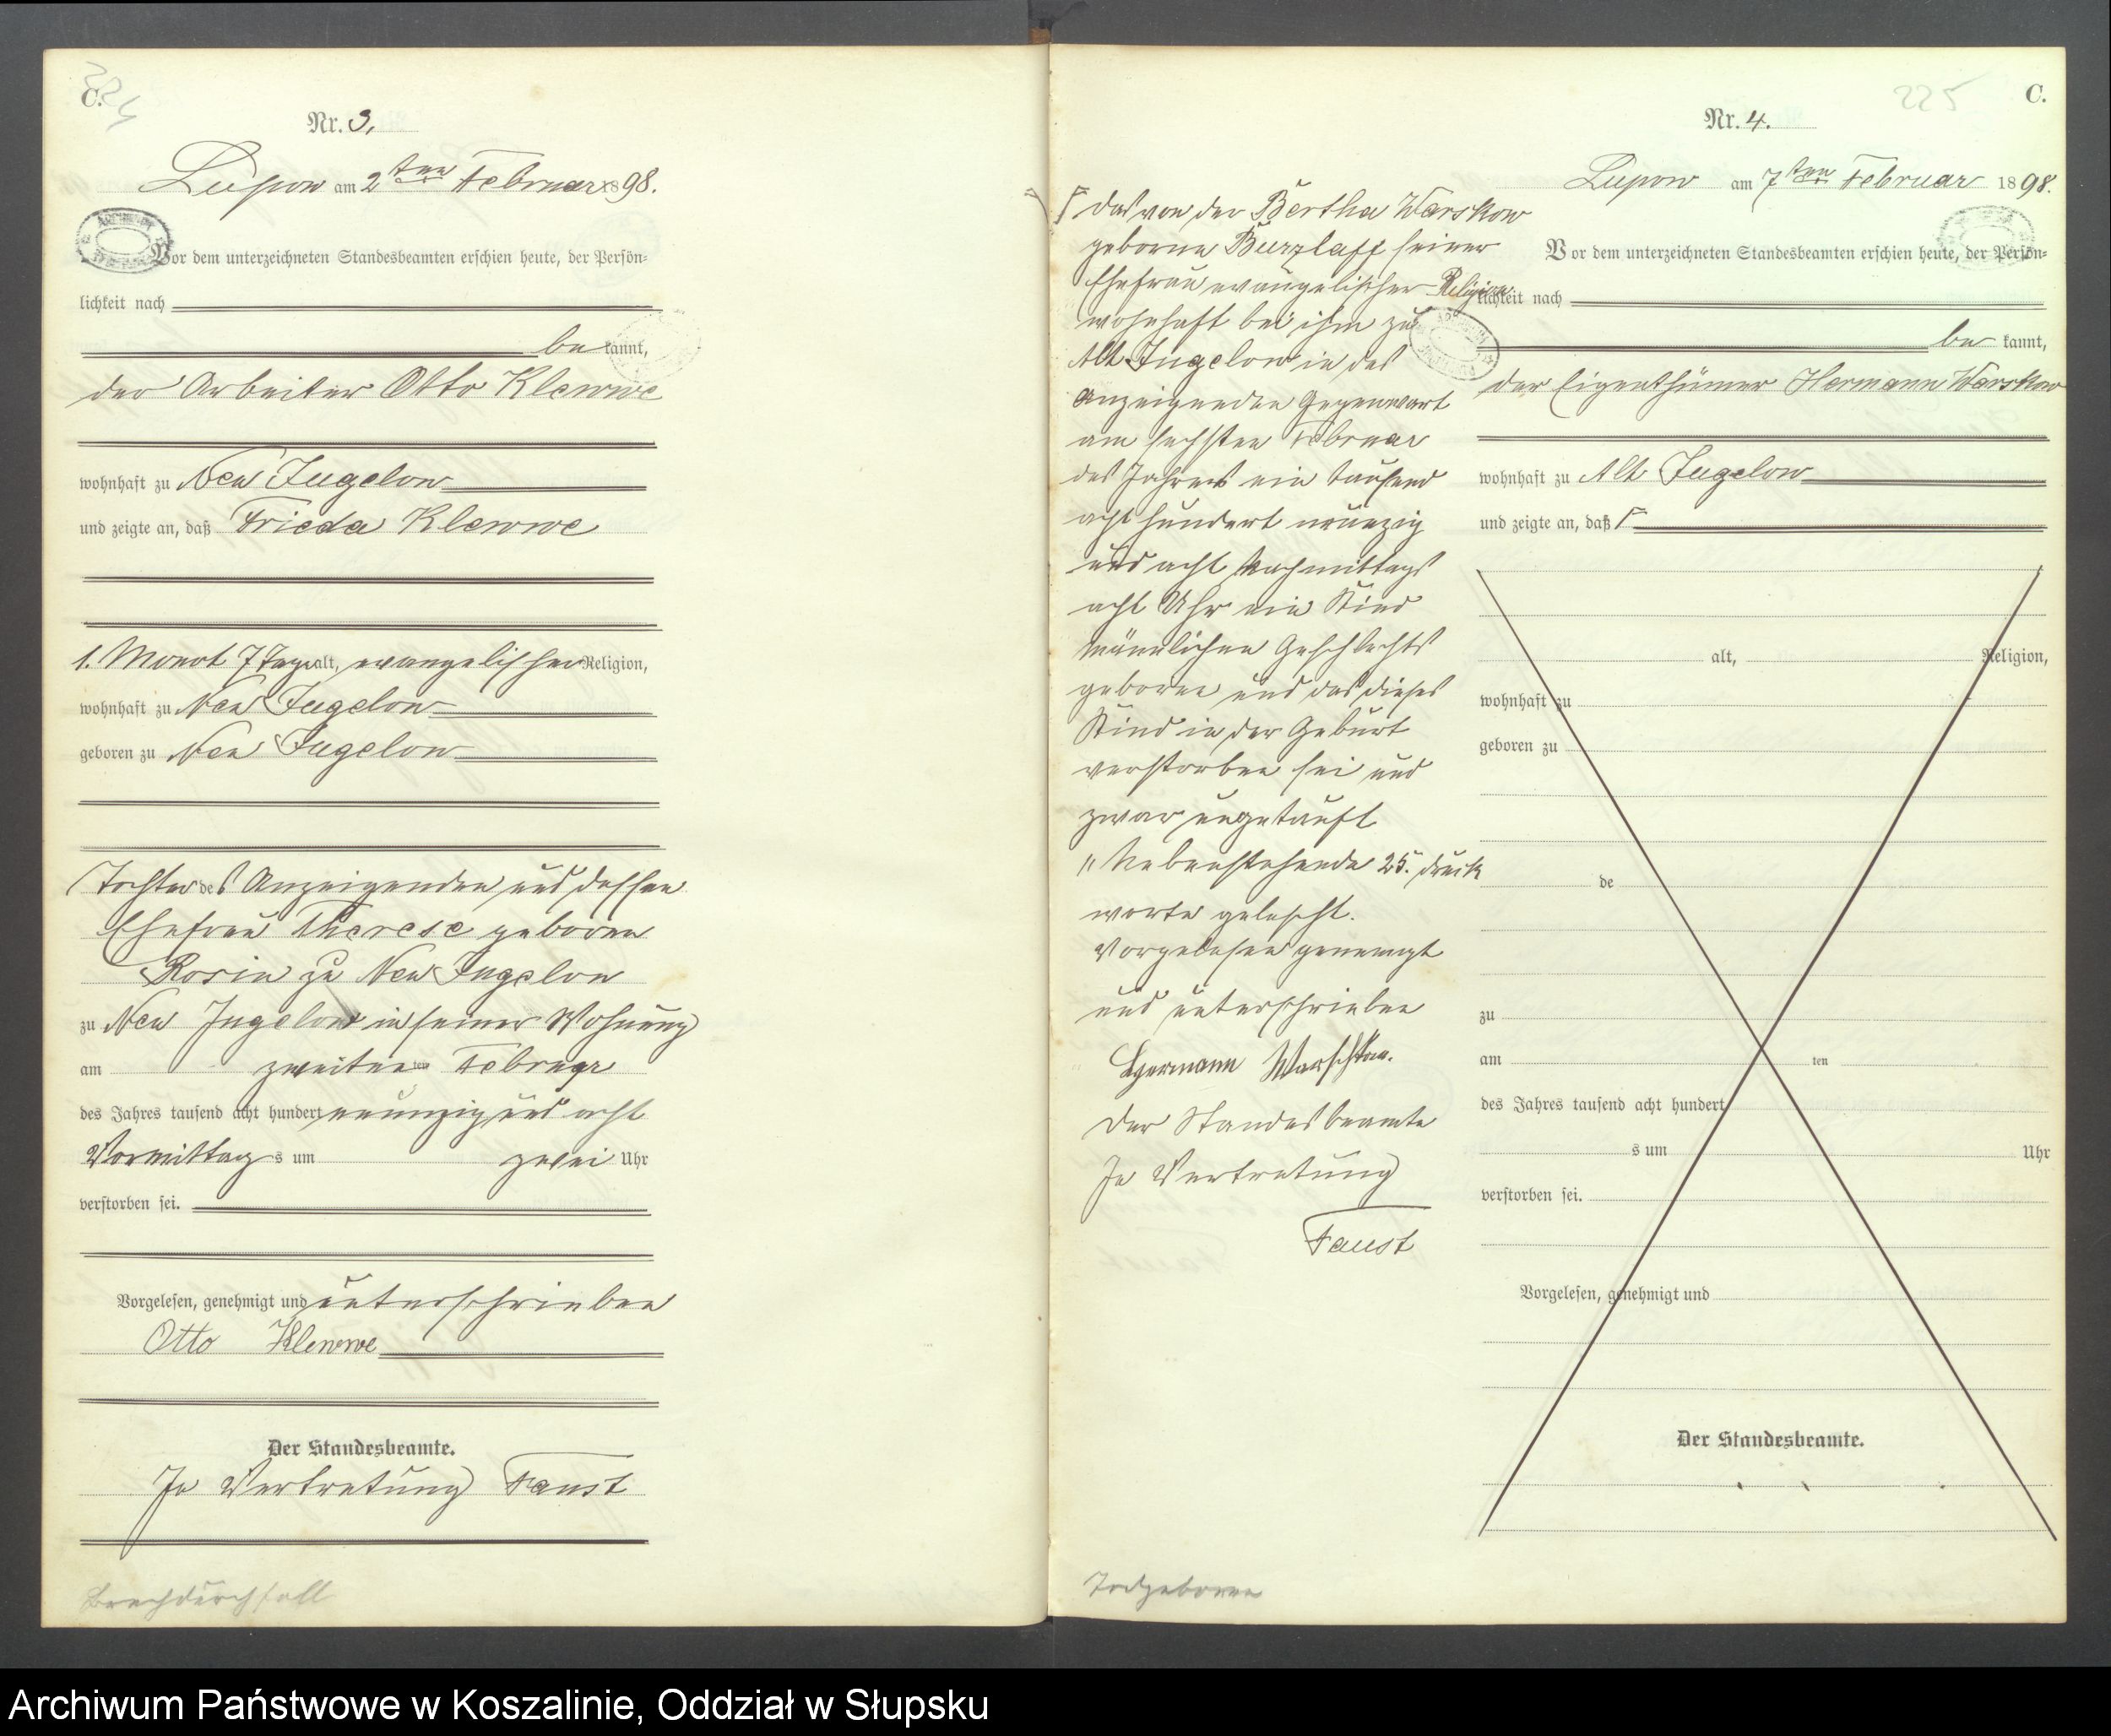 C.
224
Nr. 3.
Lupow am 2ten Februar 1898.
Vor dem unterzeichneten Standesbeamten erschien heute, der Persön-
lichkeit nach
be kannt,
der Arbeiter Otto Klewwe
wohnhaft zu Neu Jugelow
und zeigte an, daß Frieda Klewwe
1. Monat 7 Tage alt, evangelischer Religion,
wohnhaft zu Neu Jugelow
geboren zu Neu Jugelow
Tochter des Anzeigenden und dessen
Ehefrau Therese geborne
Rosin zu Neu Jugelow
zu Neu Jugelow in seiner Wohnung
am zweiten ten Februar
des Jahres tausend acht hundert neunzig und acht
Vormittag s um zwei Uhr
verstorben sei.
Vorgelesen, genehmigt und unterschrieben
Otto Klewwe
Der Standesbeamte.
In Vertretung Faust
Brechdurchfall
225
C.
Nr. 4.
Lupow am 7ten Februar 1898.
Vor dem unterzeichneten Standesbeamten erschien heute, der Persön-
lichkeit nach
be kannt,
der Eigenthümer Hermann Warskow
wohnhaft zu Alt Jugelow
und zeigte an, daß Γ
alt, Religion,
wohnhaft zu
geboren zu
de
zu
am ten
des Jahres tausend acht hundert
s um Uhr
verstorben sei.
Vorgelesen, genehmigt und
Der Standesbeamte.
Γ das von der Bertha Warskow
geborne Burzlaff seiner
Ehefrau evangelischer Religion
wohnhaft bei ihm zu
Alt Jugelow in des
Anzeigenden Gegenwart
am sechsten Februar
des Jahres ein tausend
acht hundert neunzig
und acht Nachmittags
acht Uhr ein Kind
männlichen Geschlechts
geboren und das dieses
Kind in der Geburt
verstorben sei und
zwar ungetauft
" Nebenstehende 25. druck
worte gelöscht.
Vorgelesen genemigt
und unterschrieben
Hermann Warschkow.
Der Standesbeamte
In Vertretung
Faust
Todgeboren
Archiwum Państwowe w Koszalinie, Oddział w Słupsku